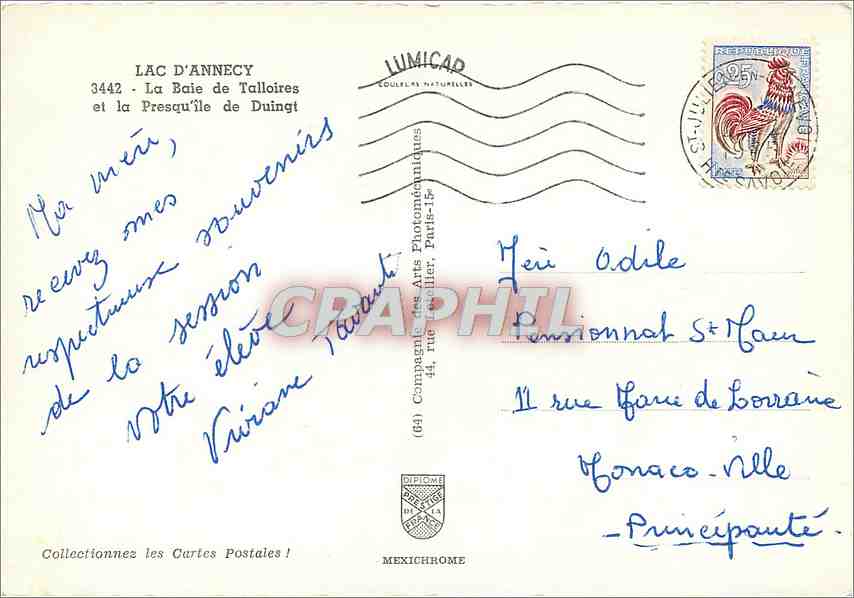 LAC D'ANNECY
3442 - La Baie de Talloires
et la Presqu'île de Duingt
LUMICAP
COULEURS NATURELLES
REPUBLIQUE
0,25
ST-JULIEN-EN-
HTE SAVOIE
Ma mère,
recevez mes
respectueux souvenirs
de la session
Votre élève
Viviane
(64) Compagnie des Arts Photomécaniques
44, rue Letellier, Paris-15e
CRAPHIL
Mère Odile
Pensionnat St Maur
11 rue Marie de Lorraine
Monaco-Ville
- Principauté -
DIPLOME
PRESTIGE
DE LA
FRANCE
Collectionnez les Cartes Postales !
MEXICHROME